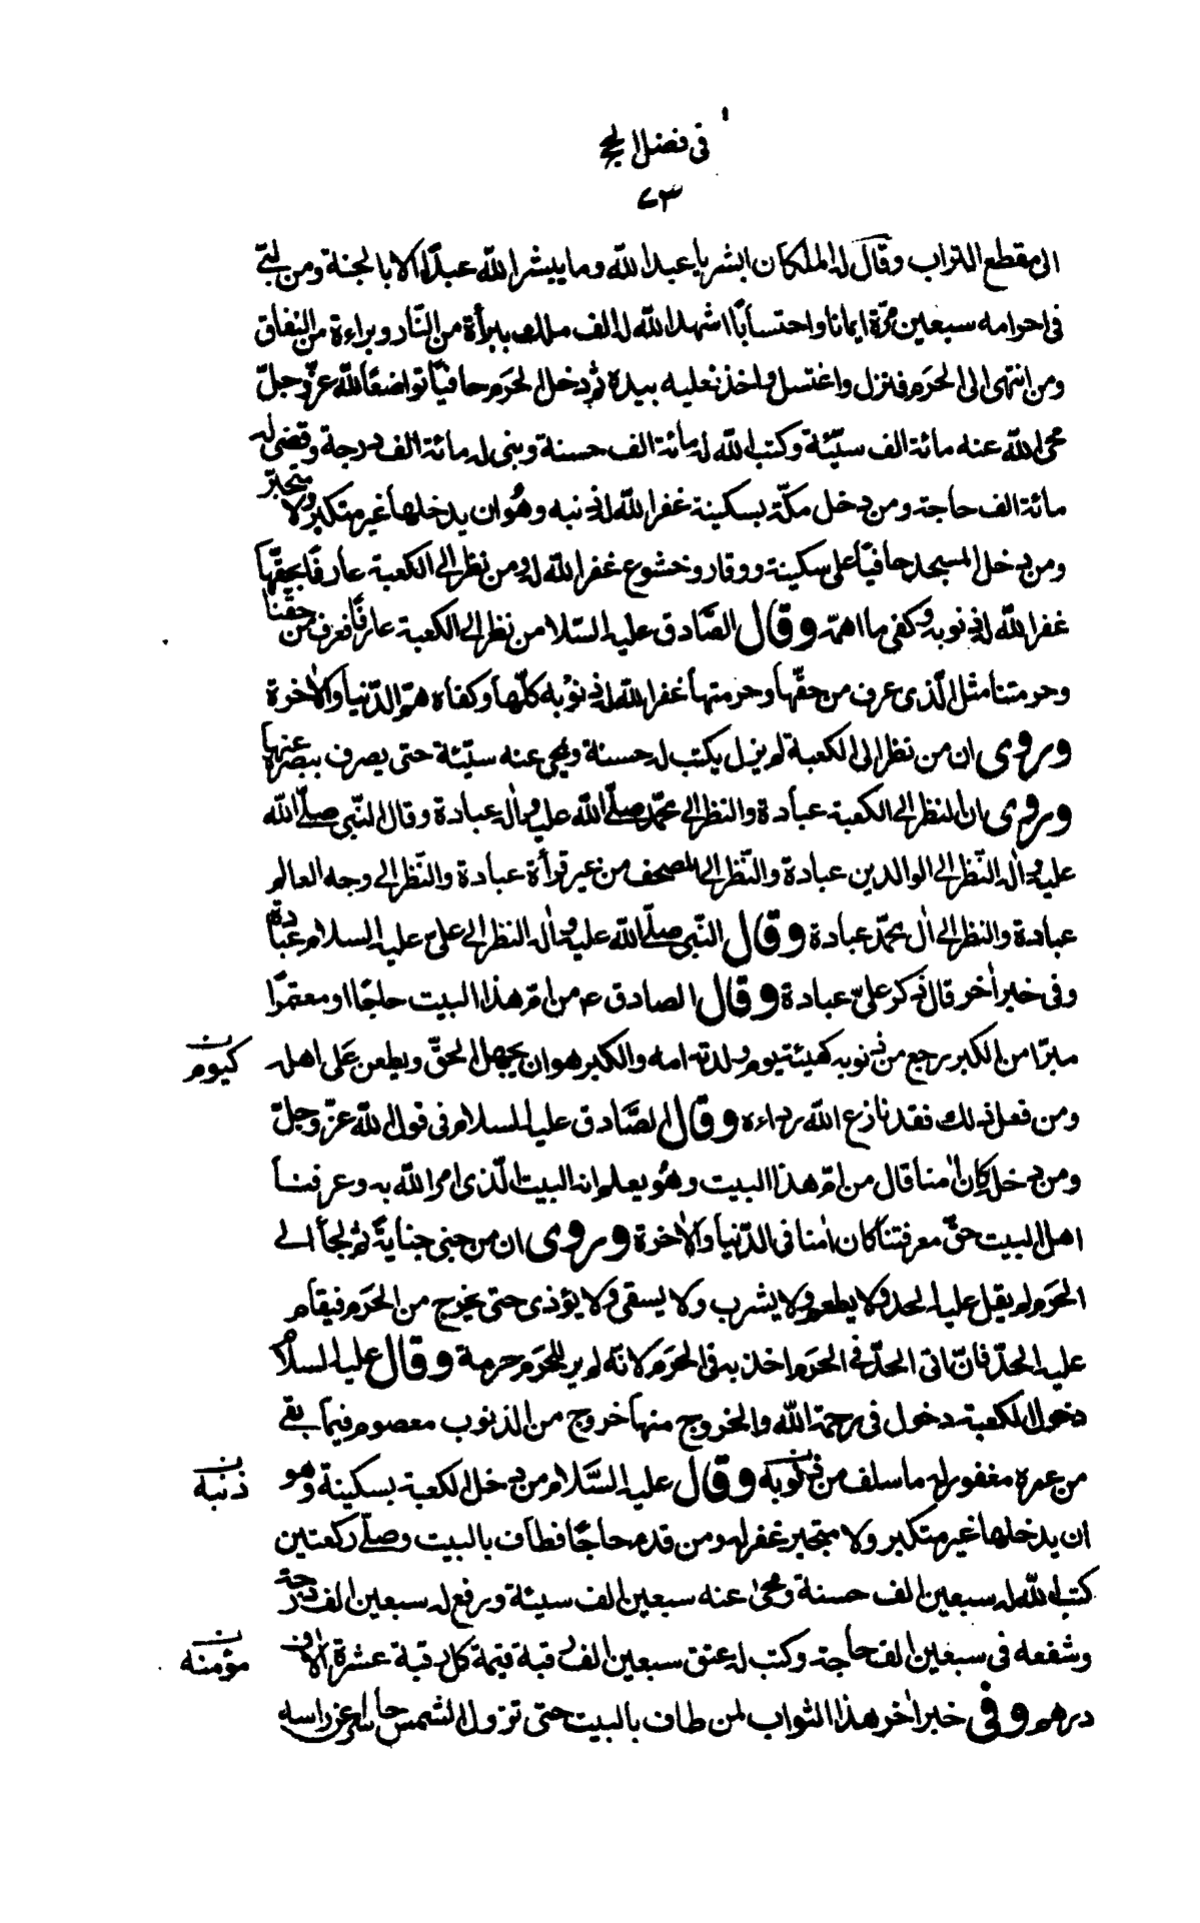 فی فضل الحج
٧٣
الی مقطع التراب وقال له الملکان ابشر یا عبد الله وما یبشر الله عبدًا الا بالجنة ومن لبّی
فی احرامه سبعین مرّة ایمانا واحتسابًا اشهد الله له الف ملك ببرأة من النّار وبراءة من النفاق
ومن انتهی الی الحرَم فنزل واغتسل واخذ نعلیه بیده ثم دخل الحرَم حافیًا تواضعًا لله عزّ وجلّ
محی الله عنه مائة الف سیّئة وکتب الله له مائة الف حسنة وبنی له مائة الف درجة وقضی له
مائة الف حاجة ومن دخل مکّة بسکینة غفر الله له ذنبه وهُو ان یدخلها غیر متکبر ولا متجبّر
ومن دخل المسجد حافیًا علی سکینة ووقار وخشوع غفر الله له ومن نظر الی الکعبة عارفًا بحقّها
غفر الله له ذنوبه وکفی ما اهمّه وقال الصّادق علیه السّلام من نظر الی الکعبة عارفًا فعرف من حقّنا
وحرمتنا مثل الّذی عرف من حقّها وحرمتها غفر الله له ذنوبه کلّها وکفاه همّ الدّنیا والاٰخرة
وروی ان من نظر الی الکعبة لم یزل یکتب له حسنة ویمحی عنه سیّئة حتی یصرف ببصره عنها
وروی ان النظر الی الکعبة عبادة والنظر الی محمّد صلّی الله علیه واٰله عبادة وقال النّبی صلّی الله
علیه واٰله النّظر الی الوالدین عبادة والنّظر الی المصحف من غیر قرأة عبادة والنّظر الی وجه العالم
عبادة والنظر الی اٰل محمّد عبادة وقال النّبی صلّی الله علیه واٰله النظر الی علی علیه السلام عبادة
وفی خبر اٰخر قال ذکر علیّ عبادة وقال الصادق ع من امّ هذا البیت حاجًا او معتمرًا
مبرّا من الکبر رجع من ذنوبه کهیئة یوم ولدته امه والکبر هو ان یجهل الحقّ ویطعن عَلی اهله کیوم ن
ومن فعل ذلك فقد نازع الله رداءه وقال الصّادق علیه السلام فی قول الله عزّ وجلّ
ومن دخله کان اٰمنا قال من امّ هذا البیت وهُو یعلم انه البیت الّذی امر الله به وعرفنا
اهل البیت حقّ معرفتنا کان اٰمنا فی الدّنیا والاٰخرة وروی ان من جنی جنایةً ثم لجأ الی
الحَرَم لم یقم علیه الحد ولا یطعم ولا یشرب ولا یسقی ولا یؤذی حتی یخرج من الحرَم فیقام
علیه الحدّ فان اتی الحدّ فی الحرَم اخذ به فی الحرَم لانّه لم یر للحرَم حرمة وقال علیه السلام
دخول الکعبة دخول فی رحمة الله والخروج منها خروج من الذنوب معصوم فیما بقی
من عمره مغفور له ما سلف من ذنوبه وقال علیه السَّلام من دخل الکعبة بسکینة وهو ذنبه ن
ان یدخلها غیر متکبر ولا متجبر غفر له ومن قدم حاجًا فطاف بالبیت وصلّی رکعتین
کتب الله له سبعین الف حسنة ومحیٰ عنه سبعین الف سیئة ورفع له سبعین الف درجة
وشفعه فی سبعین الف حاجة وکتب له عتق سبعین الف رقبة قیمة کل رقبة عشرة اٰلاف مؤمنة ن
درهم وفی خبر اٰخر هذا الثواب لمن طاف بالبیت حتی تزول الشمس حاسرا عن راسه